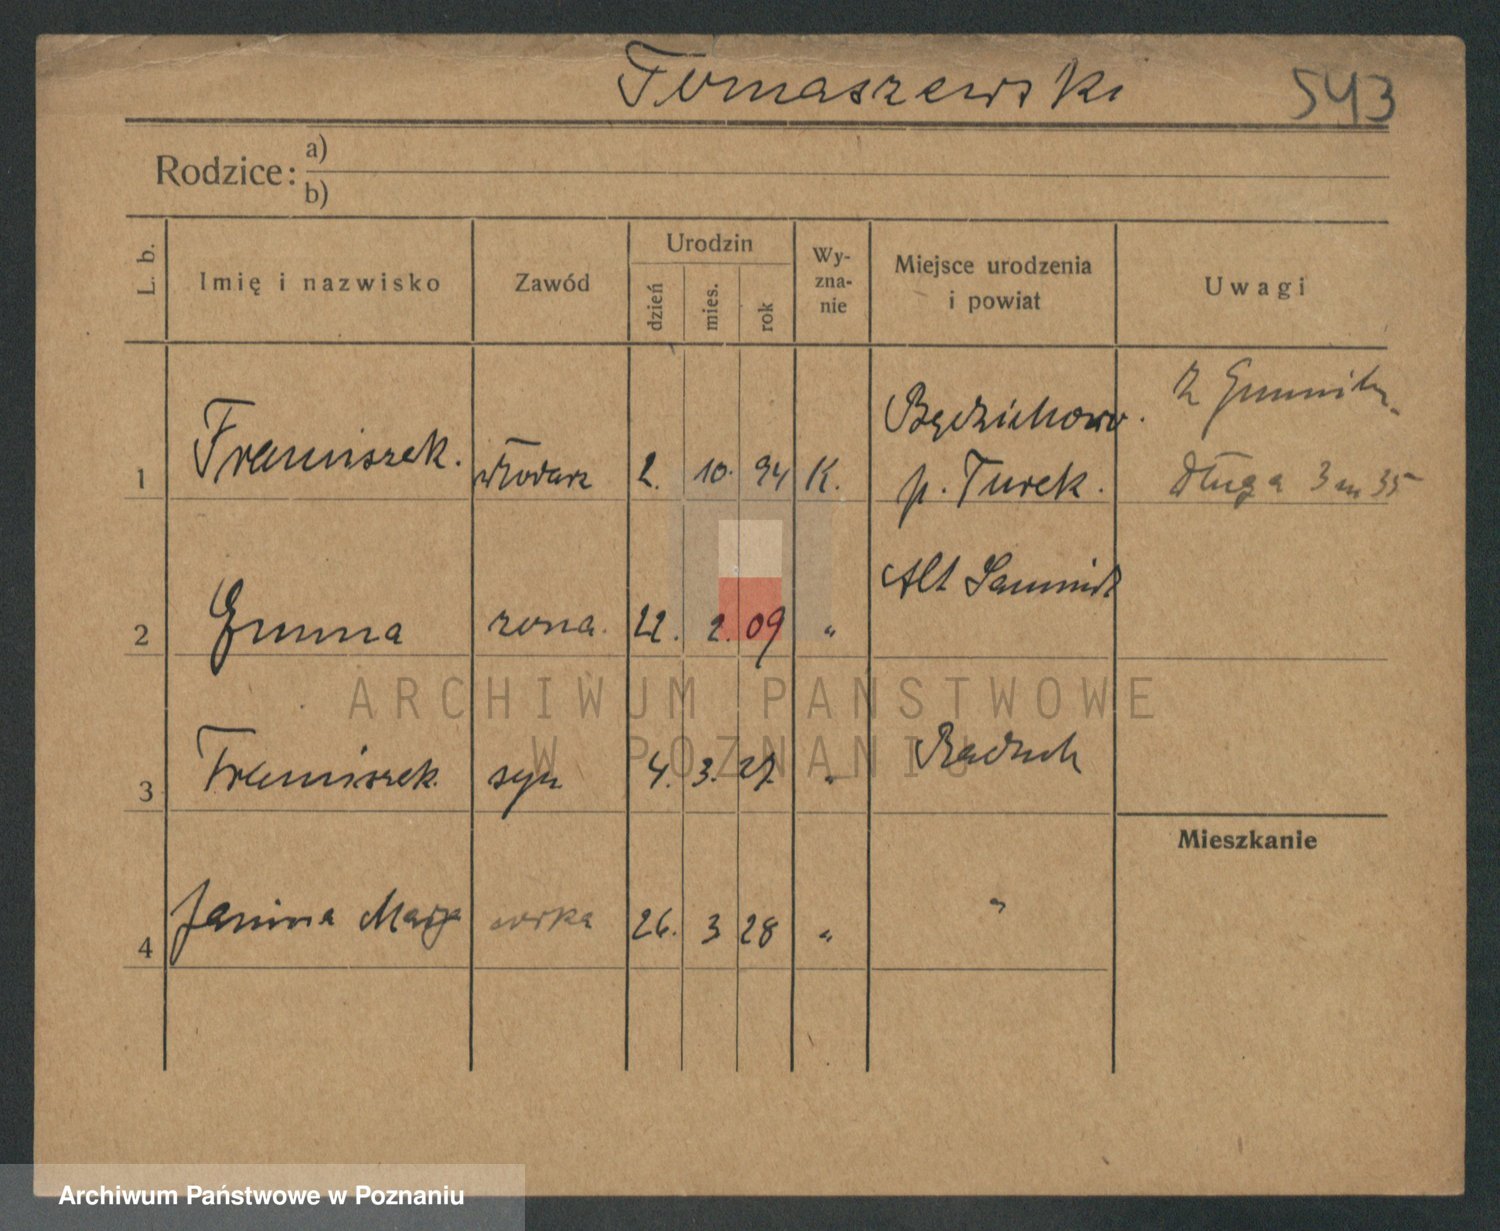 Tomaszewski 543
Rodzice: a)
b)
L. b.
Imię i nazwisko
Zawód
Urodzin
dzień
mies.
rok
Wy-
zna-
nie
Miejsce urodzenia
i powiat
Uwagi
1 Franciszek. włodarz 2. 10. 94 K. p. Turek.
z
Długa 3 m 35
Alt
2 Emma zona. 22. 2. 09 "
3 Franciszek syn 4. 3. 27. "
Mieszkanie
4 Janina Marja córka 26. 3 28 " "
ARCHIWUM PAŃSTWOWE
W POZNANIU
Archiwum Państwowe w Poznaniu